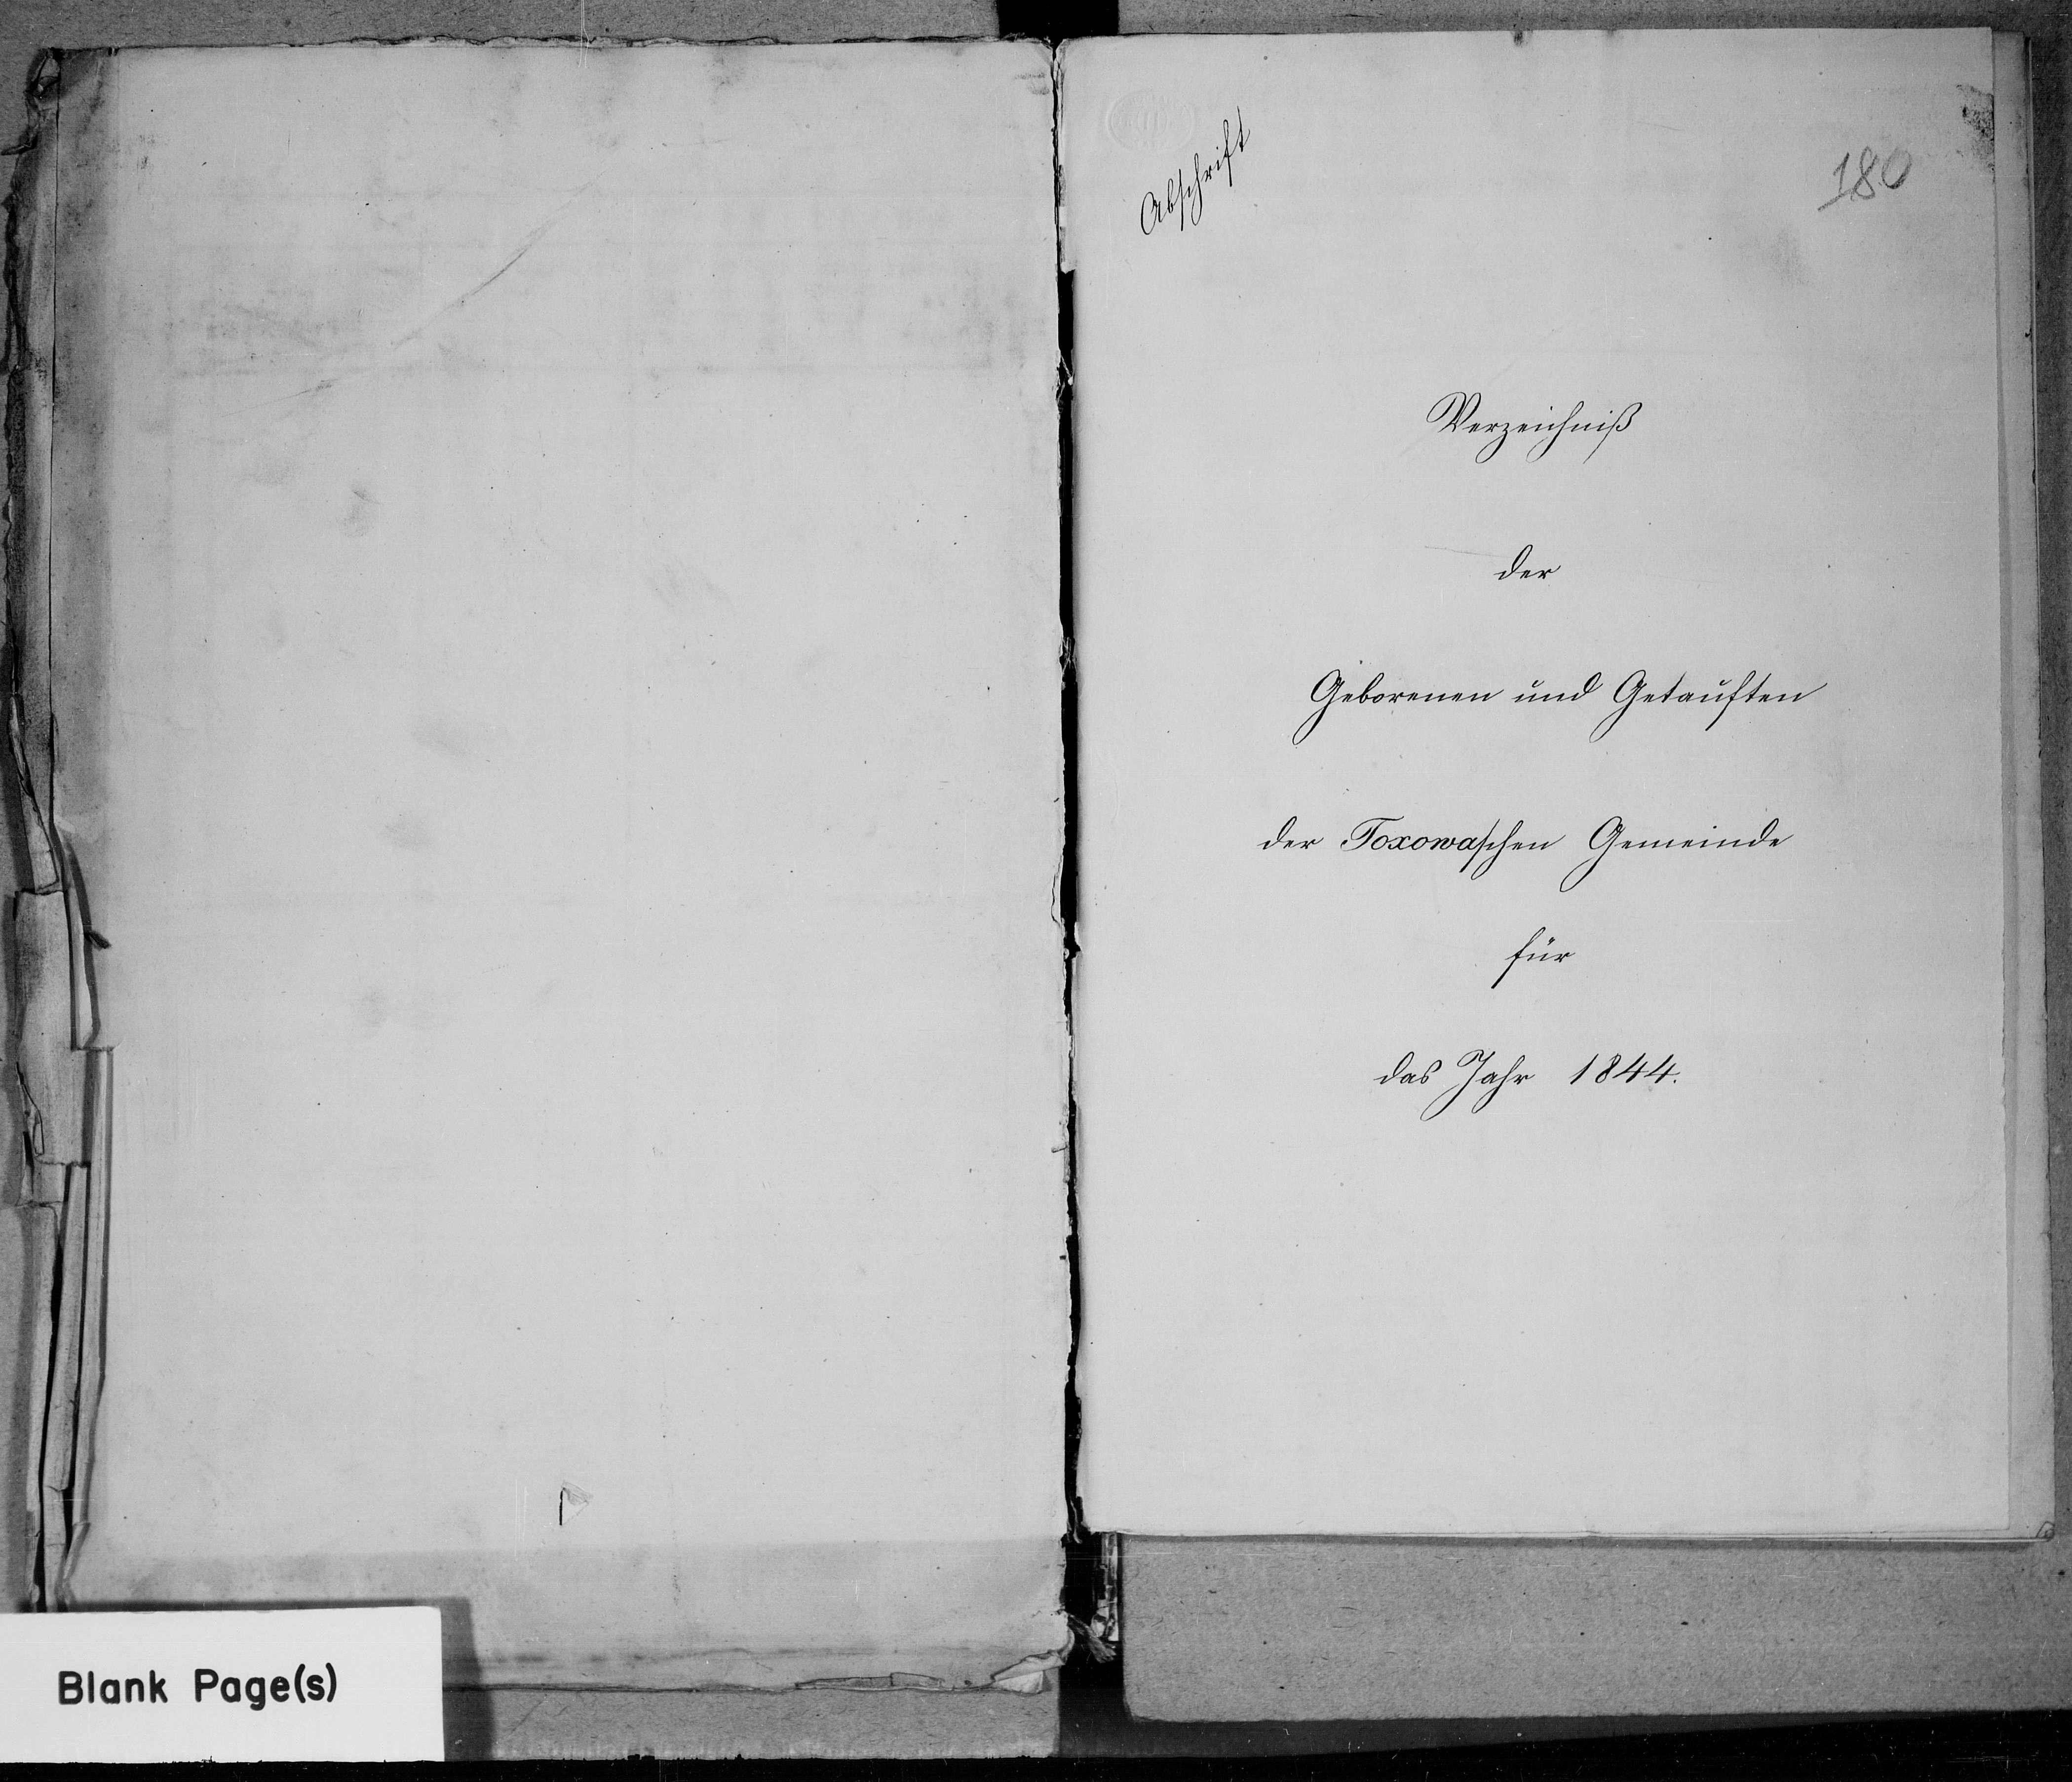 Abschrift
180
Verzeichniß
der
Geborenen und Getauften
der Toxowaschen Gemeinde
für
das Jahr 1844.
Blank Page(s)